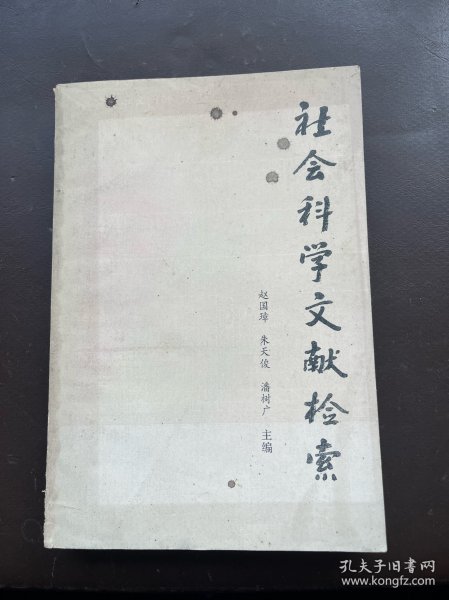 社会科学文献检索
赵国璋 朱天俊 潘树广 主编
孔夫子旧书网
www.kongfz.com